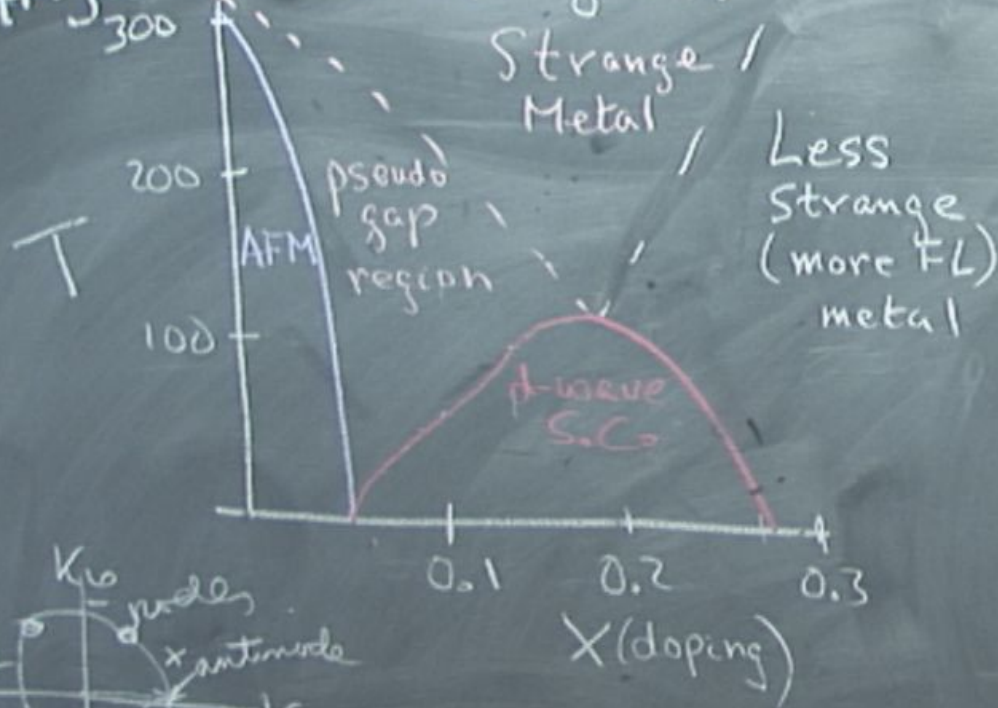 300
Strange
Metal
Less
Strange
(more FL)
metal
200
pseudo
gap
region
T
AFM
100
d-wave
S.C.
0.1
0.2
0.3
X (doping)
nodes
x antinode